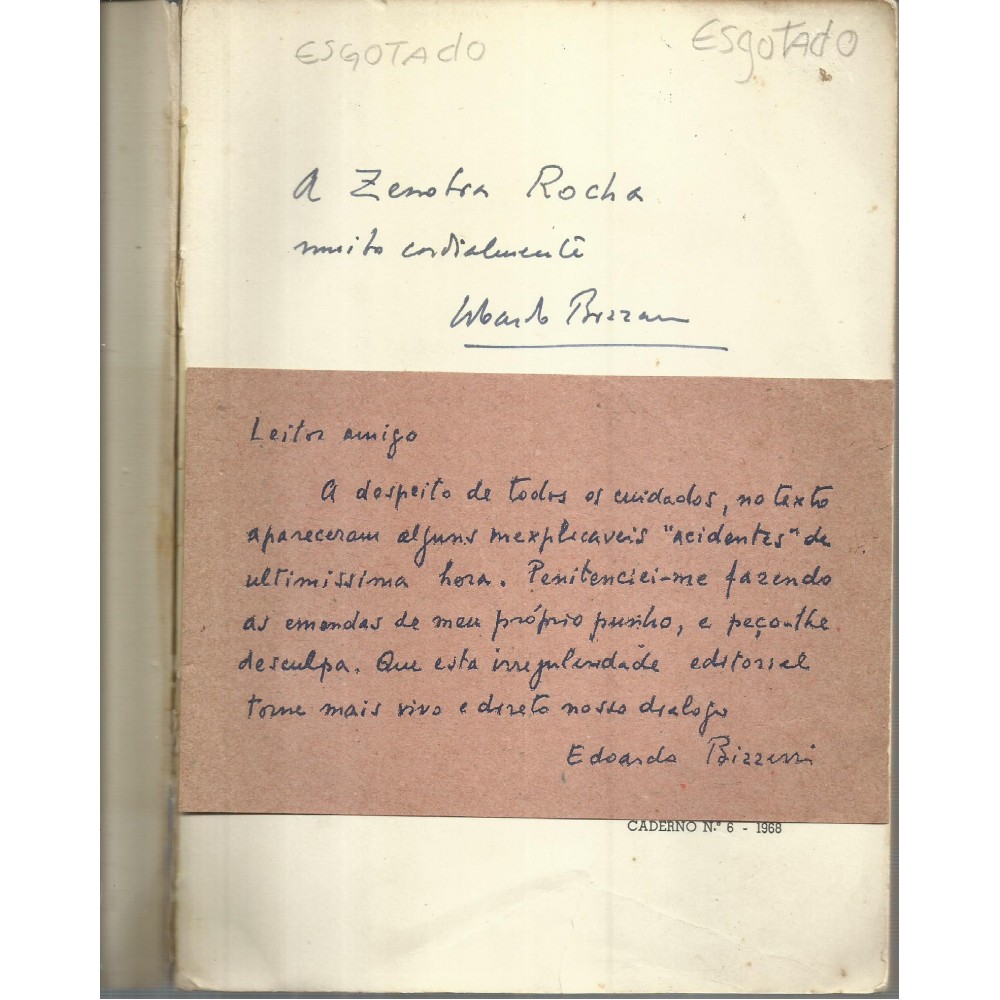 ESGOTADO
ESgOTADO
A Zenobia Rocha
muito cordialmente
Edoardo Bizzarri
Leitor amigo
A despeito de todos os cuidados, no texto
apareceram alguns inexplicaveis "acidentes" de
ultimissima hora. Penitenciei-me fazendo
as emendas de meu próprio punho, e peço-lhe
desculpa. Que esta irregularidade editorial
torne mais vivo e direto nosso dialogo
Edoardo Bizzarri
CADERNO N.º 6 - 1968